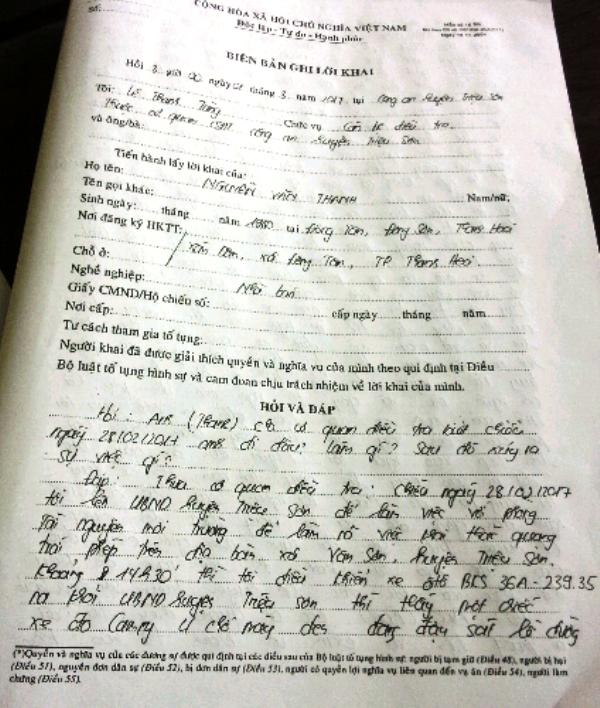 Số:
CỘNG HÒA XÃ HỘI CHỦ NGHĨA VIỆT NAM
Độc lập - Tự do - Hạnh phúc
BIÊN BẢN GHI LỜI KHAI
Hồi 8 giờ 00 ngày tháng 3 năm 2017 tại Công an huyện Triệu Sơn
Tôi: Lê Trung Chức vụ Cán bộ điều tra
Thuộc cơ quan CSĐT công an huyện Triệu Sơn
và ông/bà:
Tiến hành lấy lời khai của:
Họ tên: NGUYỄN VĂN THANH Nam/nữ;
Tên gọi khác:
Sinh ngày: tháng năm 1980 tại Đông Tân, Đông Sơn, Thanh Hoá
Nơi đăng ký HKTT:
Chỗ ở: xã Đông Tân, TP Thanh Hoá
Nghề nghiệp: Nhà báo
Giấy CMND/Hộ chiếu số: cấp ngày tháng năm
Nơi cấp:
Tư cách tham gia tố tụng:
Người khai đã được giải thích quyền và nghĩa vụ của mình theo qui định tại Điều
Bộ luật tố tụng hình sự và cam đoan chịu trách nhiệm về lời khai của mình.
HỎI VÀ ĐÁP
Hỏi: Anh (Thanh) cho cơ quan điều tra biết chiều
ngày 28/02/2017 anh đi đâu? làm gì? Sau đó xảy ra
sự việc gì?
Đáp: Thưa cơ quan điều tra: Chiều ngày 28/02/2017
tôi lên UBND huyện Triệu Sơn để làm việc với phòng
Tài nguyên môi trường để làm rõ việc khai thác quặng
trái phép trên địa bàn xã Vân Sơn, huyện Triệu Sơn.
Khoảng 14h30' thì tôi điều khiển xe ôtô BKS 36A-239.35
ra khỏi UBND huyện Triệu Sơn thì thấy một chiếc
xe ôtô Camry 4 chỗ màu đen đang đậu sát lề đường
(*)Quyền và nghĩa vụ của các đương sự được qui định tại các điều sau của Bộ luật tố tụng hình sự: người bị tạm giữ (Điều 48), người bị hại
(Điều 51), nguyên đơn dân sự (Điều 52), bị đơn dân sự (Điều 53), người có quyền lợi nghĩa vụ liên quan đến vụ án (Điều 54), người làm
chứng (Điều 55).